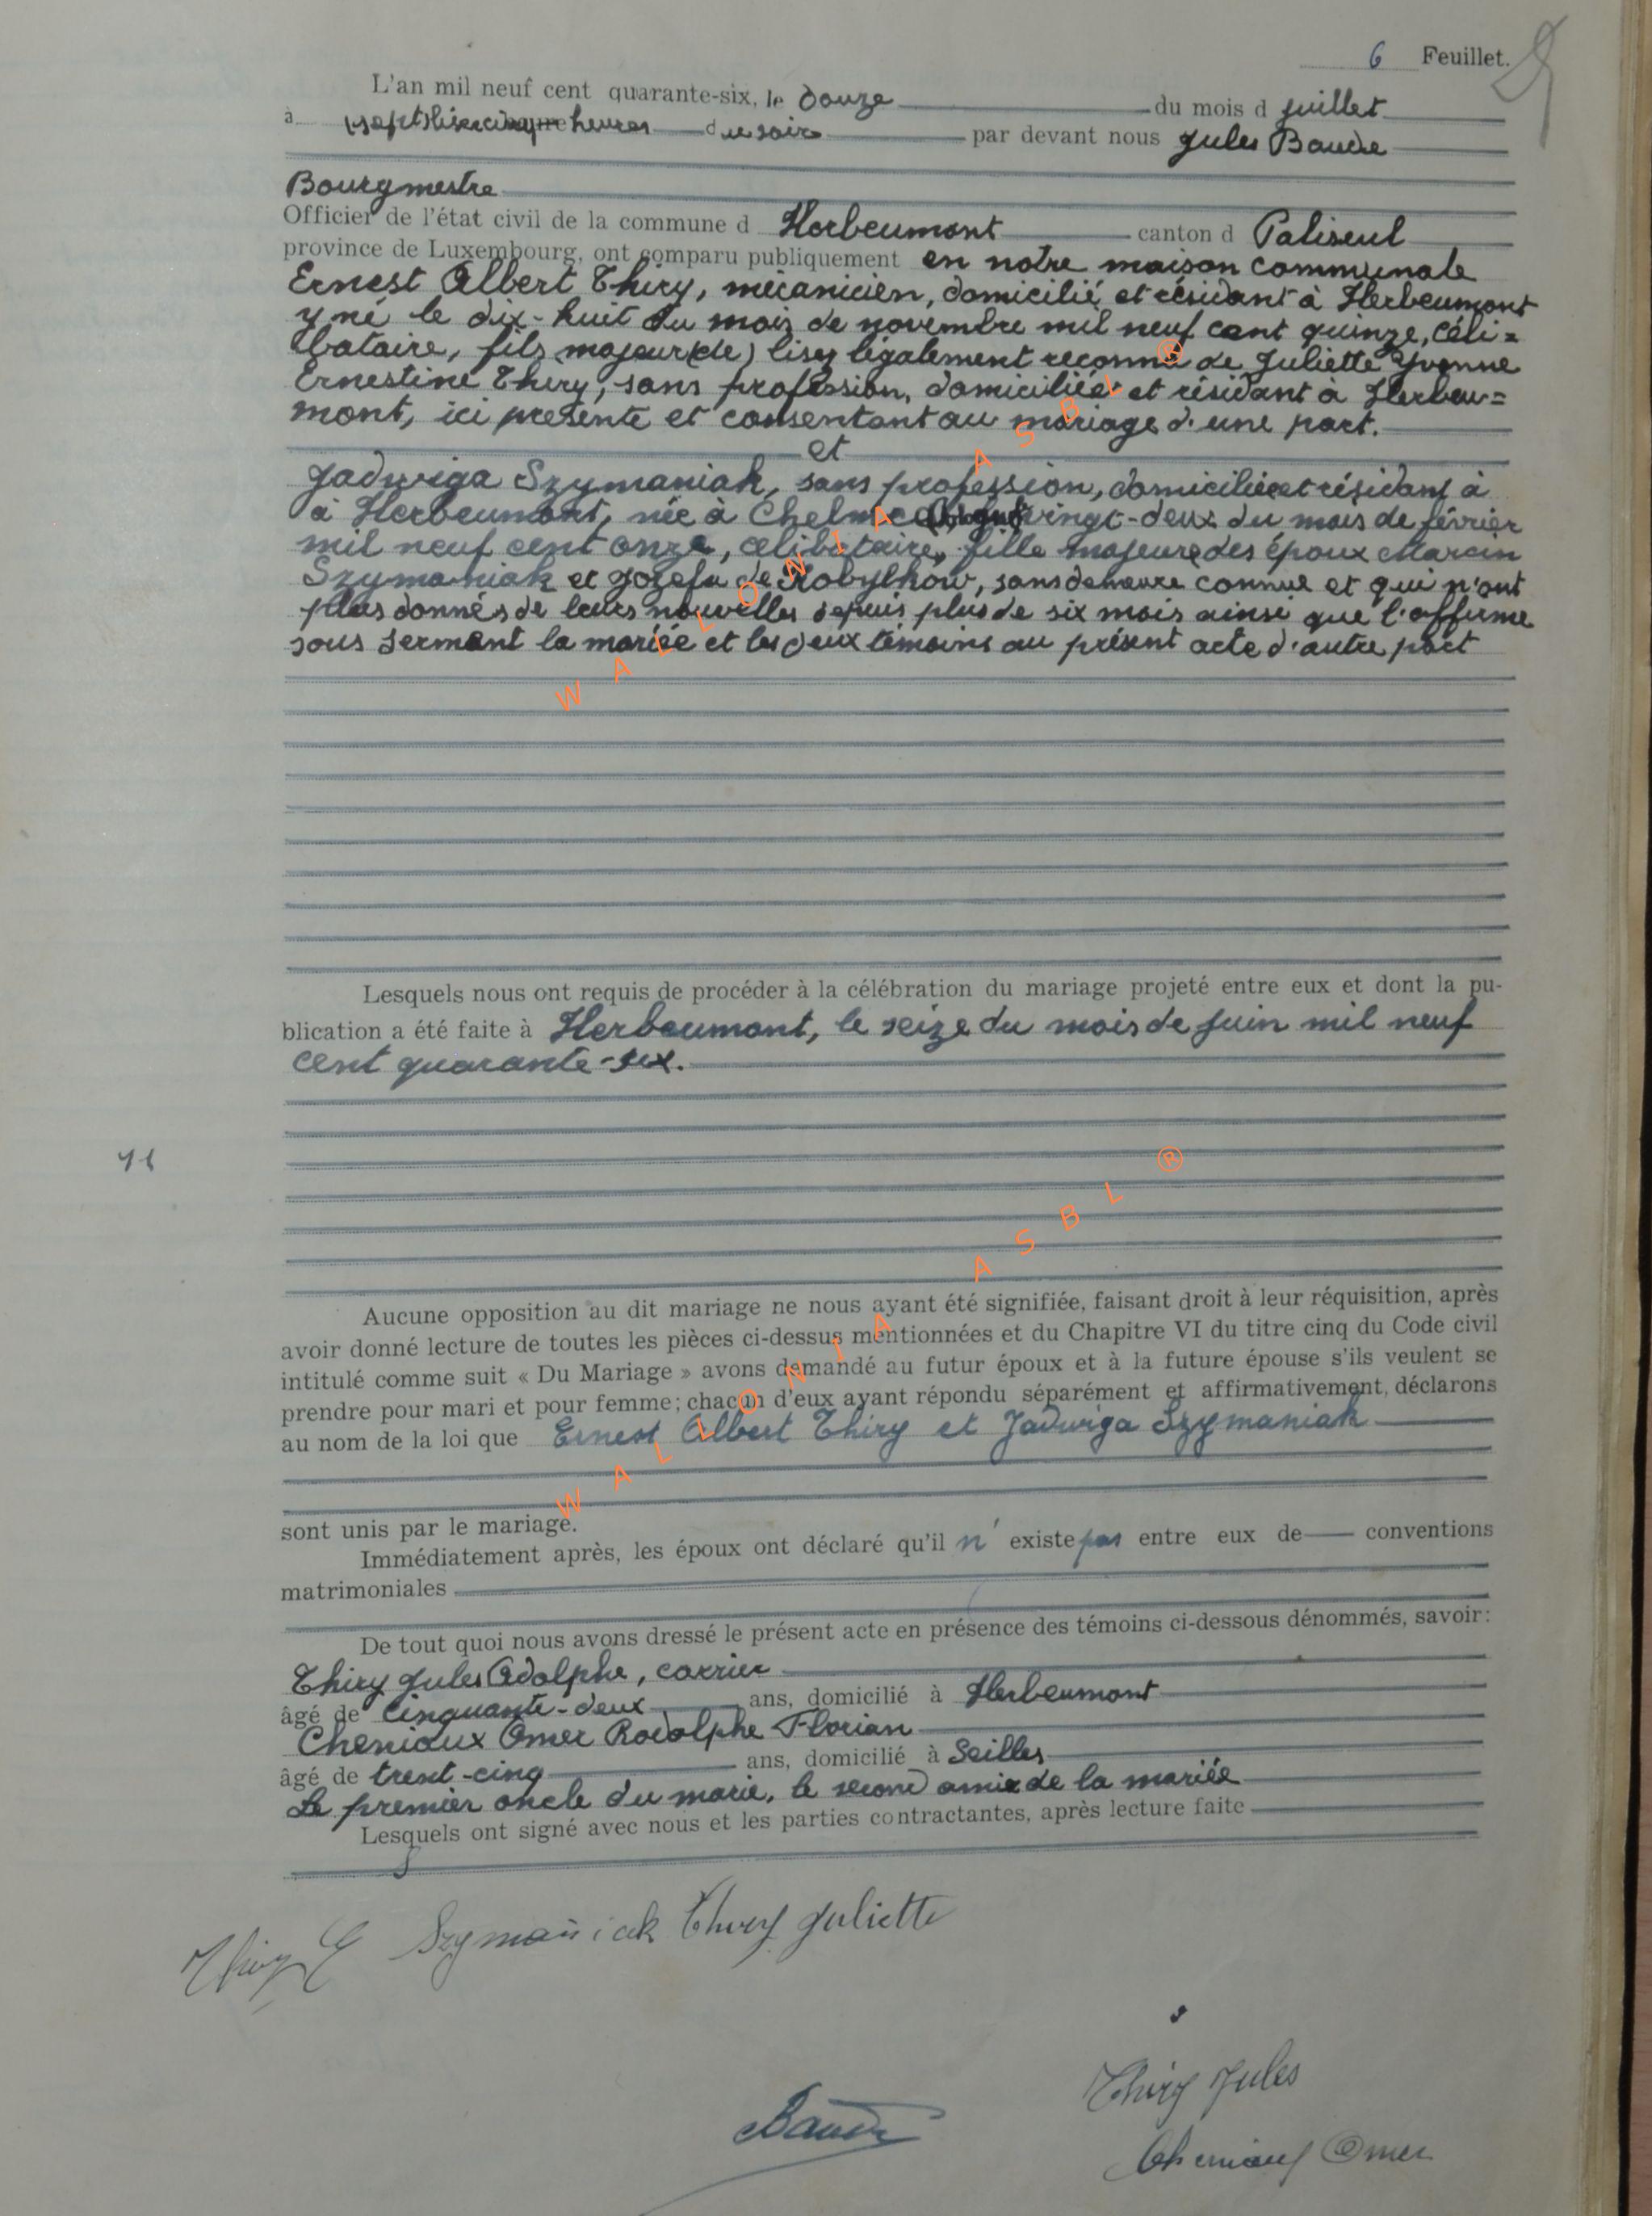 6 Feuillet.
L'an mil neuf cent quarante-six, le douze du mois d juillet
à (sept) lisez cinq heures du soir par devant nous Jules Baude
Bourgmestre
Officier de l'état civil de la commune d Herbeumont canton d Paliseul
province de Luxembourg, ont comparu publiquement en notre maison communale
Ernest Albert Thiry, mécanicien, domicilié et résidant à Herbeumont
y né le dix-huit du mois de novembre mil neuf cent quinze, céli=
bataire, fils majeur (de) lisez légalement reconnu de Juliette Yvonne
Ernestine Thiry, sans profession, domiciliée et résidant à Herbeu=
mont, ici présente et consentant au mariage d'une part.
et
Jadwiga Szymaniak, sans profession, domiciliée et résidant à
à Herbeumont, née à Chelmce (Pologne) vingt-deux du mois de février
mil neuf cent onze, célibataire, fille majeure des époux Marcin
Szymaniak et Jozefa de Kobylkow, sans demeure connue et qui n'ont
plus donnés de leurs nouvelles depuis plus de six mois ainsi que l'affirme
sous serment la mariée et les deux témoins au présent acte d'autre part
Lesquels nous ont requis de procéder à la célébration du mariage projeté entre eux et dont la pu-
blication a été faite à Herbeumont, le seize du mois de juin mil neuf
cent quarante-six.
Aucune opposition au dit mariage ne nous ayant été signifiée, faisant droit à leur réquisition, après
avoir donné lecture de toutes les pièces ci-dessus mentionnées et du Chapitre VI du titre cinq du Code civil
intitulé comme suit « Du Mariage » avons demandé au futur époux et à la future épouse s'ils veulent se
prendre pour mari et pour femme; chacun d'eux ayant répondu séparément et affirmativement, déclarons
au nom de la loi que Ernest Albert Thiry et Jadwiga Szymaniak
sont unis par le mariage.
Immédiatement après, les époux ont déclaré qu'il n' existe pas entre eux de conventions
matrimoniales
De tout quoi nous avons dressé le présent acte en présence des témoins ci-dessous dénommés, savoir:
Thiry Jules Adolphe, carrier
âgé de cinquante-deux ans, domicilié à Herbeumont
Cheniaux Omer Rodolphe Florian
âgé de trent-cinq ans, domicilié à Seilles
Le premier oncle du marié, le second amie de la mariée
Lesquels ont signé avec nous et les parties contractantes, après lecture faite
Thiry E Szymaniak Thiry Juliette
Thiry Jules
Baude
Cheniaux Omer
WALLONIA ASBL ®
WALLONIA ASBL ®